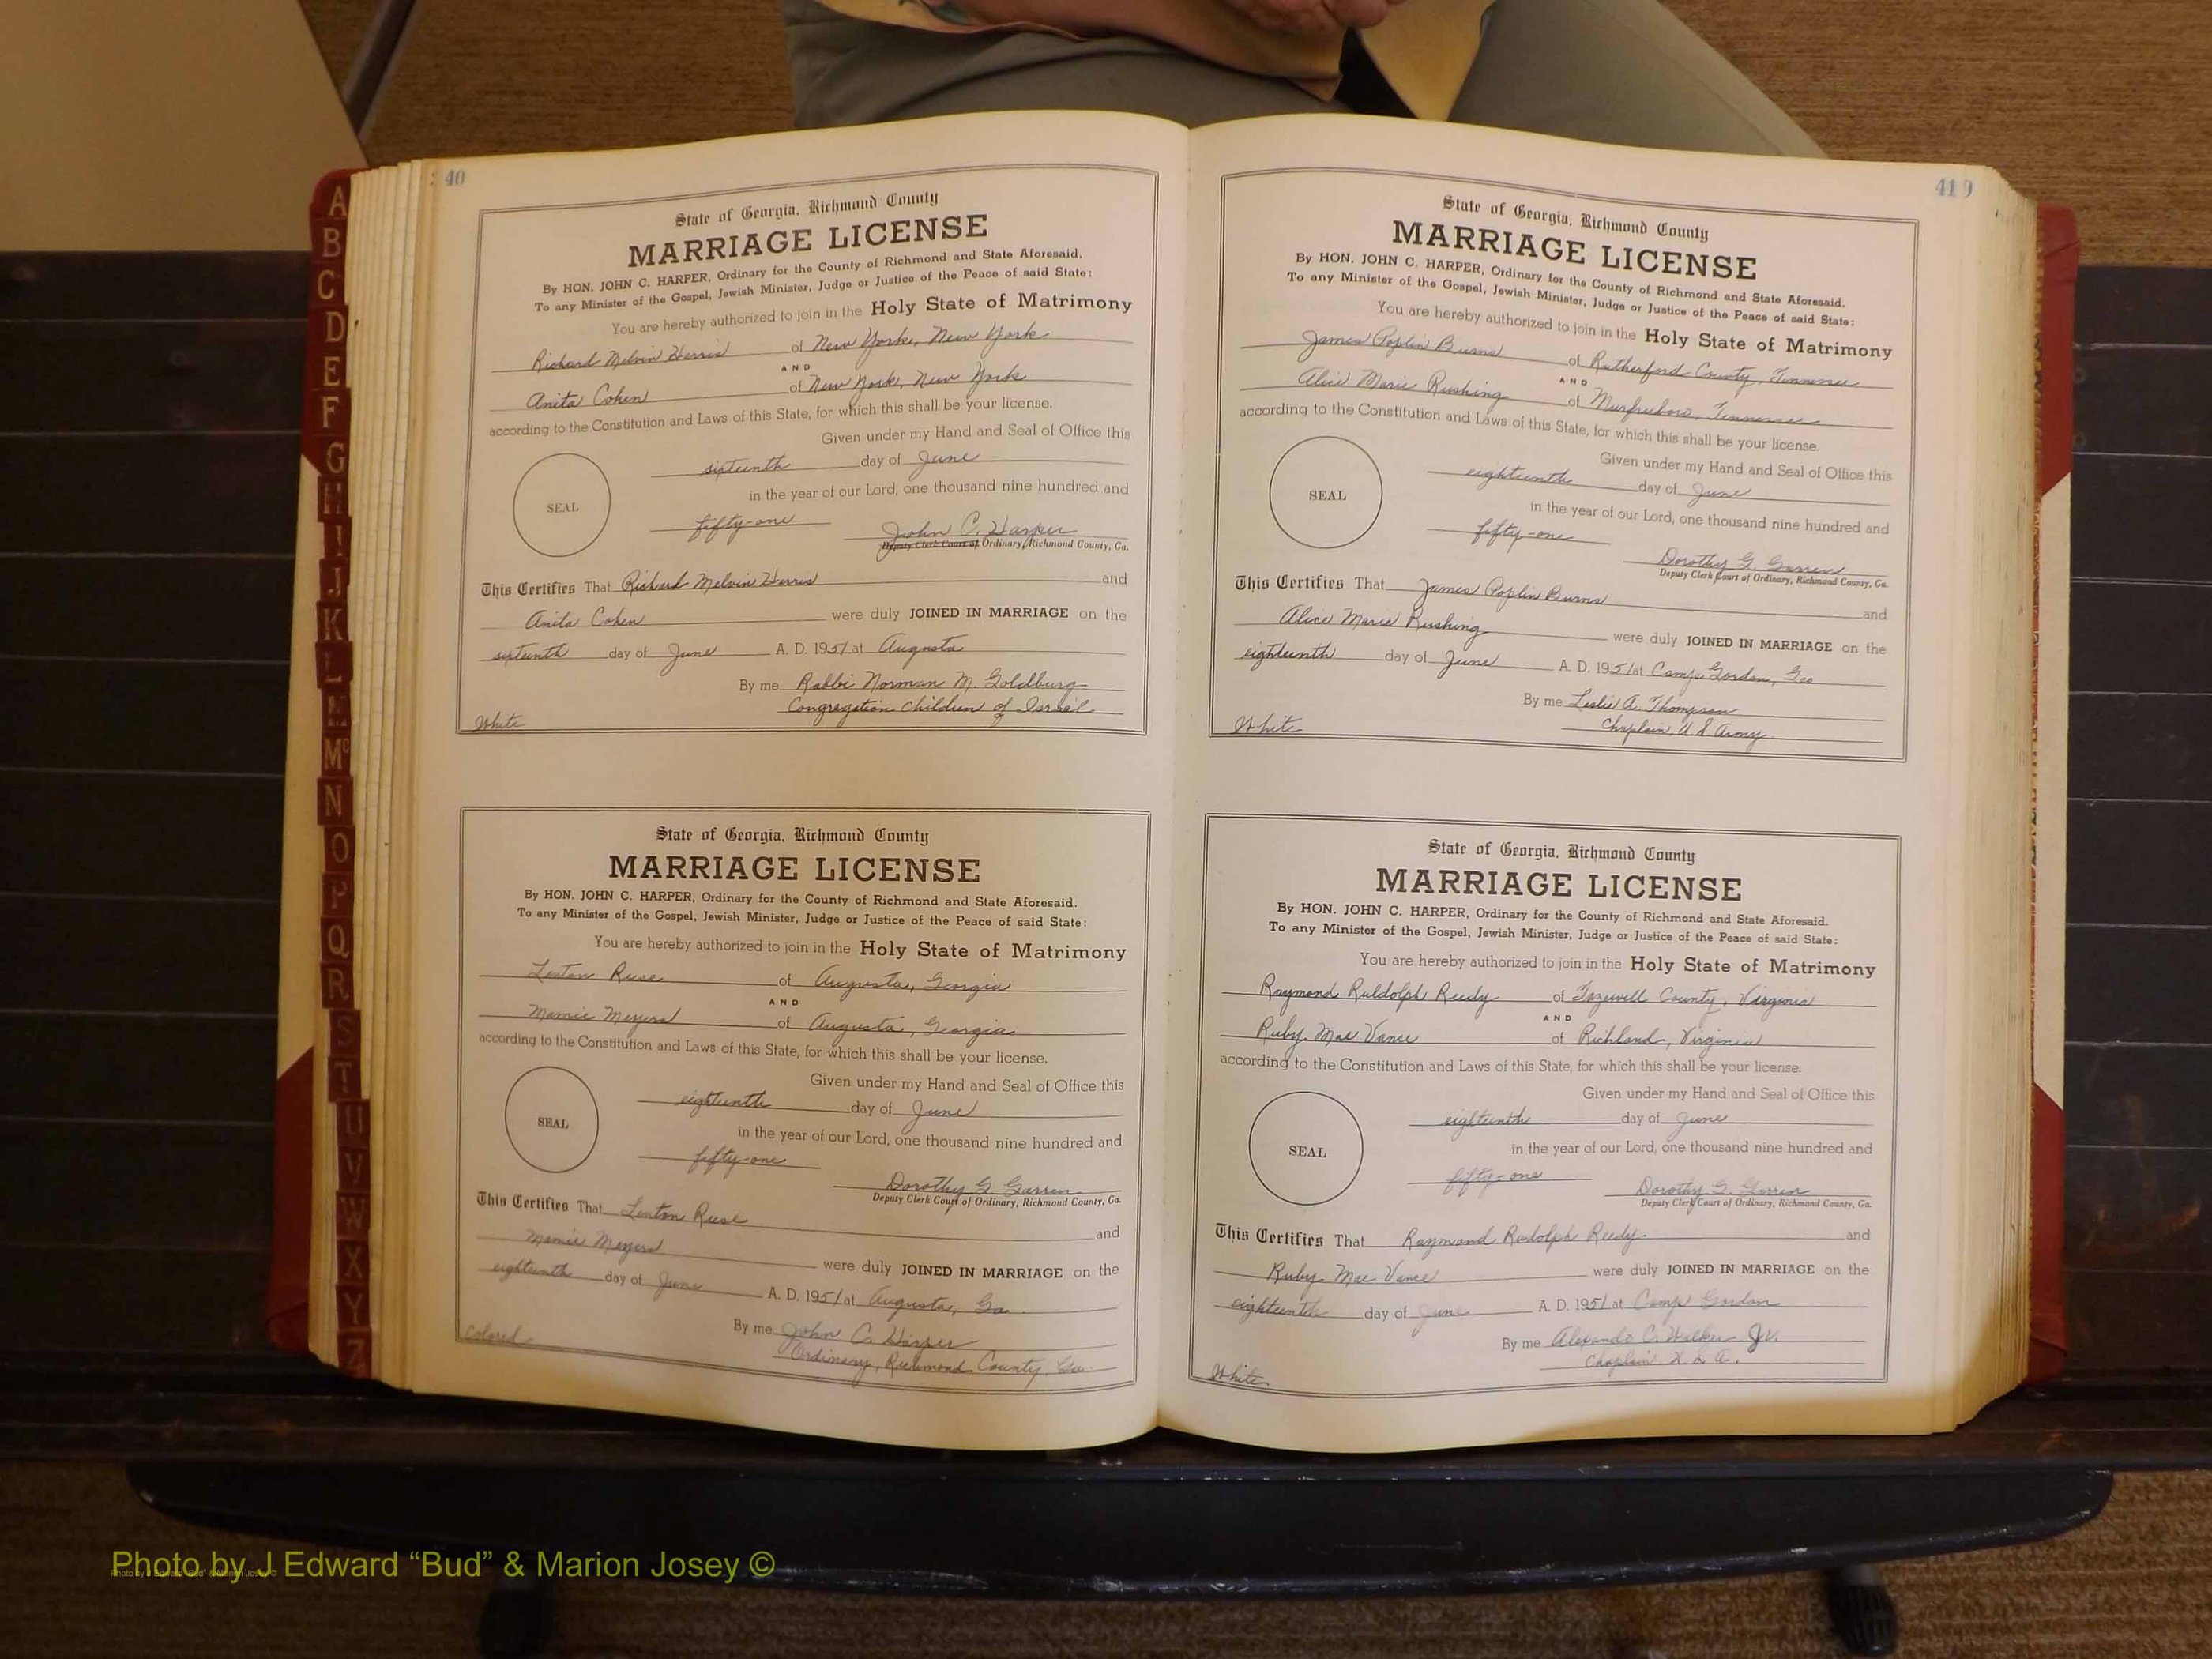 40
State of Georgia, Richmond County
MARRIAGE LICENSE
By HON. JOHN C. HARPER, Ordinary for the County of Richmond and State Aforesaid.
To any Minister of the Gospel, Jewish Minister, Judge or Justice of the Peace of said State:
You are hereby authorized to join in the Holy State of Matrimony
Richard Melvin Harris of New York, New York
AND
Anita Cohen of New York, New York
according to the Constitution and Laws of this State, for which this shall be your license.
Given under my Hand and Seal of Office this
sixteenth day of June
SEAL
in the year of our Lord, one thousand nine hundred and
fifty-one John C. Harper
Deputy Clerk Court of Ordinary, Richmond County, Ga.
This Certifies That Richard Melvin Harris and
Anita Cohen were duly JOINED IN MARRIAGE on the
sixteenth day of June A. D. 1951 at Augusta
By me Rabbi Norman M. Goldburg
Congregation Children of Israel
White
State of Georgia, Richmond County
MARRIAGE LICENSE
By HON. JOHN C. HARPER, Ordinary for the County of Richmond and State Aforesaid.
To any Minister of the Gospel, Jewish Minister, Judge or Justice of the Peace of said State:
You are hereby authorized to join in the Holy State of Matrimony
Reese of Augusta, Georgia
AND
Mamie Meyers of Augusta, Georgia
according to the Constitution and Laws of this State, for which this shall be your license.
Given under my Hand and Seal of Office this
eighteenth day of June
SEAL
in the year of our Lord, one thousand nine hundred and
fifty-one
Dorothy G. Garren
Deputy Clerk Court of Ordinary, Richmond County, Ga.
This Certifies That Reese
and
Mamie Meyers
were duly JOINED IN MARRIAGE on the
eighteenth day of June A. D. 1951 at Augusta, Ga.
By me John C. Harper
Ordinary, Richmond County, Ga.
Colored
419
State of Georgia, Richmond County
MARRIAGE LICENSE
By HON. JOHN C. HARPER, Ordinary for the County of Richmond and State Aforesaid.
To any Minister of the Gospel, Jewish Minister, Judge or Justice of the Peace of said State:
You are hereby authorized to join in the Holy State of Matrimony
James Poplin Burns of Rutherford County, Tennessee
AND
Alice Marie Rushing of Murfreboro, Tennessee
according to the Constitution and Laws of this State, for which this shall be your license.
Given under my Hand and Seal of Office this
eighteenth day of June
SEAL
in the year of our Lord, one thousand nine hundred and
fifty-one
Dorothy G. Garren
Deputy Clerk Court of Ordinary, Richmond County, Ga.
This Certifies That James Poplin Burns and
Alice Marie Rushing were duly JOINED IN MARRIAGE on the
eighteenth day of June A. D. 1951 at Camp Gordon, Geo
By me Leslie A. Thompson
Chaplain, U S Army
White
State of Georgia, Richmond County
MARRIAGE LICENSE
By HON. JOHN C. HARPER, Ordinary for the County of Richmond and State Aforesaid.
To any Minister of the Gospel, Jewish Minister, Judge or Justice of the Peace of said State:
You are hereby authorized to join in the Holy State of Matrimony
Raymond Ruldolph Reedy of Tazewell County, Virginia
AND
Ruby Mae Vance of Richland, Virginia
according to the Constitution and Laws of this State, for which this shall be your license.
Given under my Hand and Seal of Office this
eighteenth day of June
SEAL
in the year of our Lord, one thousand nine hundred and
fifty-one
Dorothy G. Garren
Deputy Clerk Court of Ordinary, Richmond County, Ga.
This Certifies That Raymond Rudolph Reedy and
Ruby Mae Vance were duly JOINED IN MARRIAGE on the
eighteenth day of June A. D. 1951 at Camp Gordon
By me C. Walker Jr.
Chaplain
White
A
B
C
D
E
F
G
H
I
J
K
L
M
Mc
N
O
P
Q
R
S
T
U
V
W
X
Y
Z
Photo by J Edward “Bud” & Marion Josey ©
Photo by J Edward “Bud” & Marion Josey ©